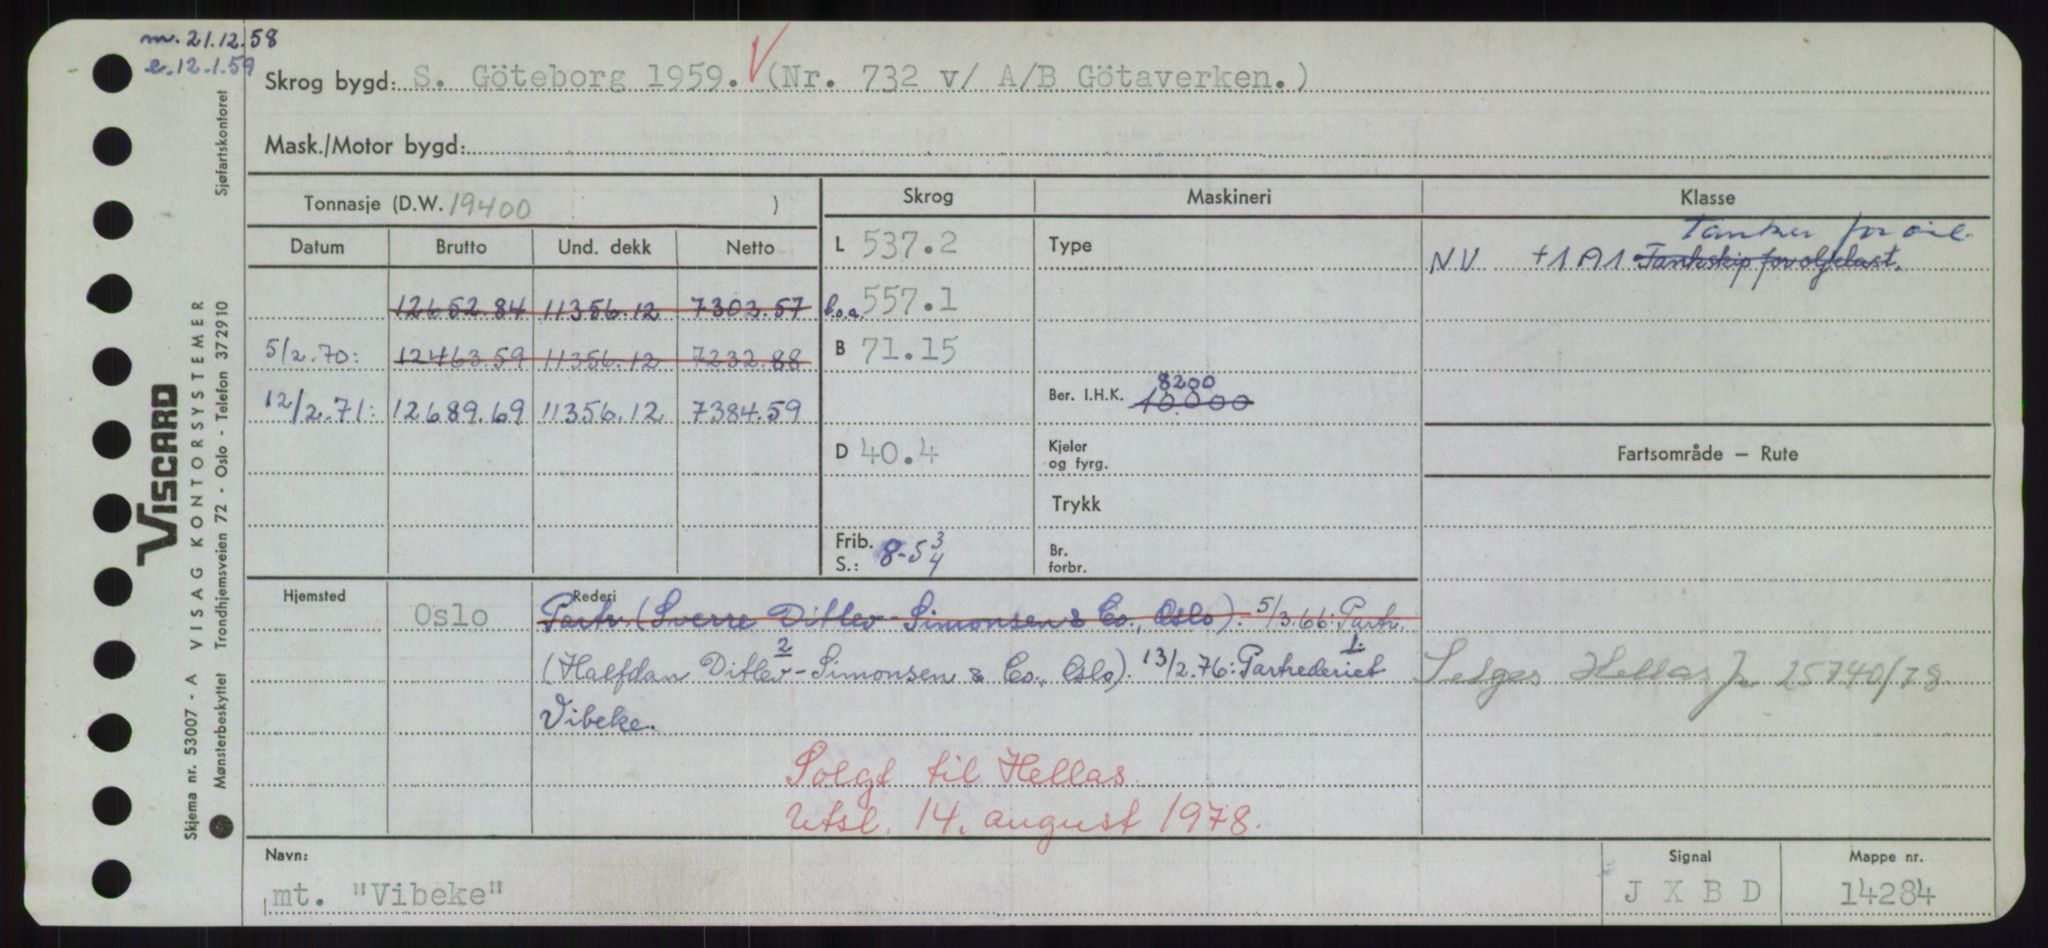 m. 21.12.58
e. 12.1.59
Skrog bygd: S. Göteborg 1959. (Nr. 732 v/ A/B Götaverken.)
Mask./Motor bygd:
Tonnasje (D.W. 19400 )
Skrog Maskineri Klasse
Datum Brutto Und. dekk Netto
L 537.2 Type
Tanker for oil.
NV +1A1 Tankskip for oljelast.
12652.84 11356.12 7303.57
l.o.a. 557.1
5/2.70: 12463.59 11356.12 7232.88
B 71.15
8200
Ber. I.H.K. 10.000
12/2.71: 12689.69 11356.12 7384.59
D 40.4
Kjeler
og fyrg.
Fartsområde – Rute
Trykk
Frib.
S.: 8-5 3/4
Br.
forbr.
Hjemsted Oslo
Rederi
Partr. (Sverre Ditlev-Simonsen & Co., Oslo). 5/3.66: Partr.
2 1.
(Halfdan Ditlev-Simonsen & Co., Oslo). 13/2.76: Partrederiet
Vibeke.
Selges Hellas 25740/78
Solgt til Hellas.
Utsl. 14. august 1978.
Navn:
mt. "Vibeke"
Signal
J X B D
Mappe nr.
14284
VISCARD
Skjema nr. 53007 - A VISAG KONTORSYSTEMER
Mønsterbeskyttet Trondhjemsveien 72 - Oslo - Telefon 372910 Sjøfartskontoret